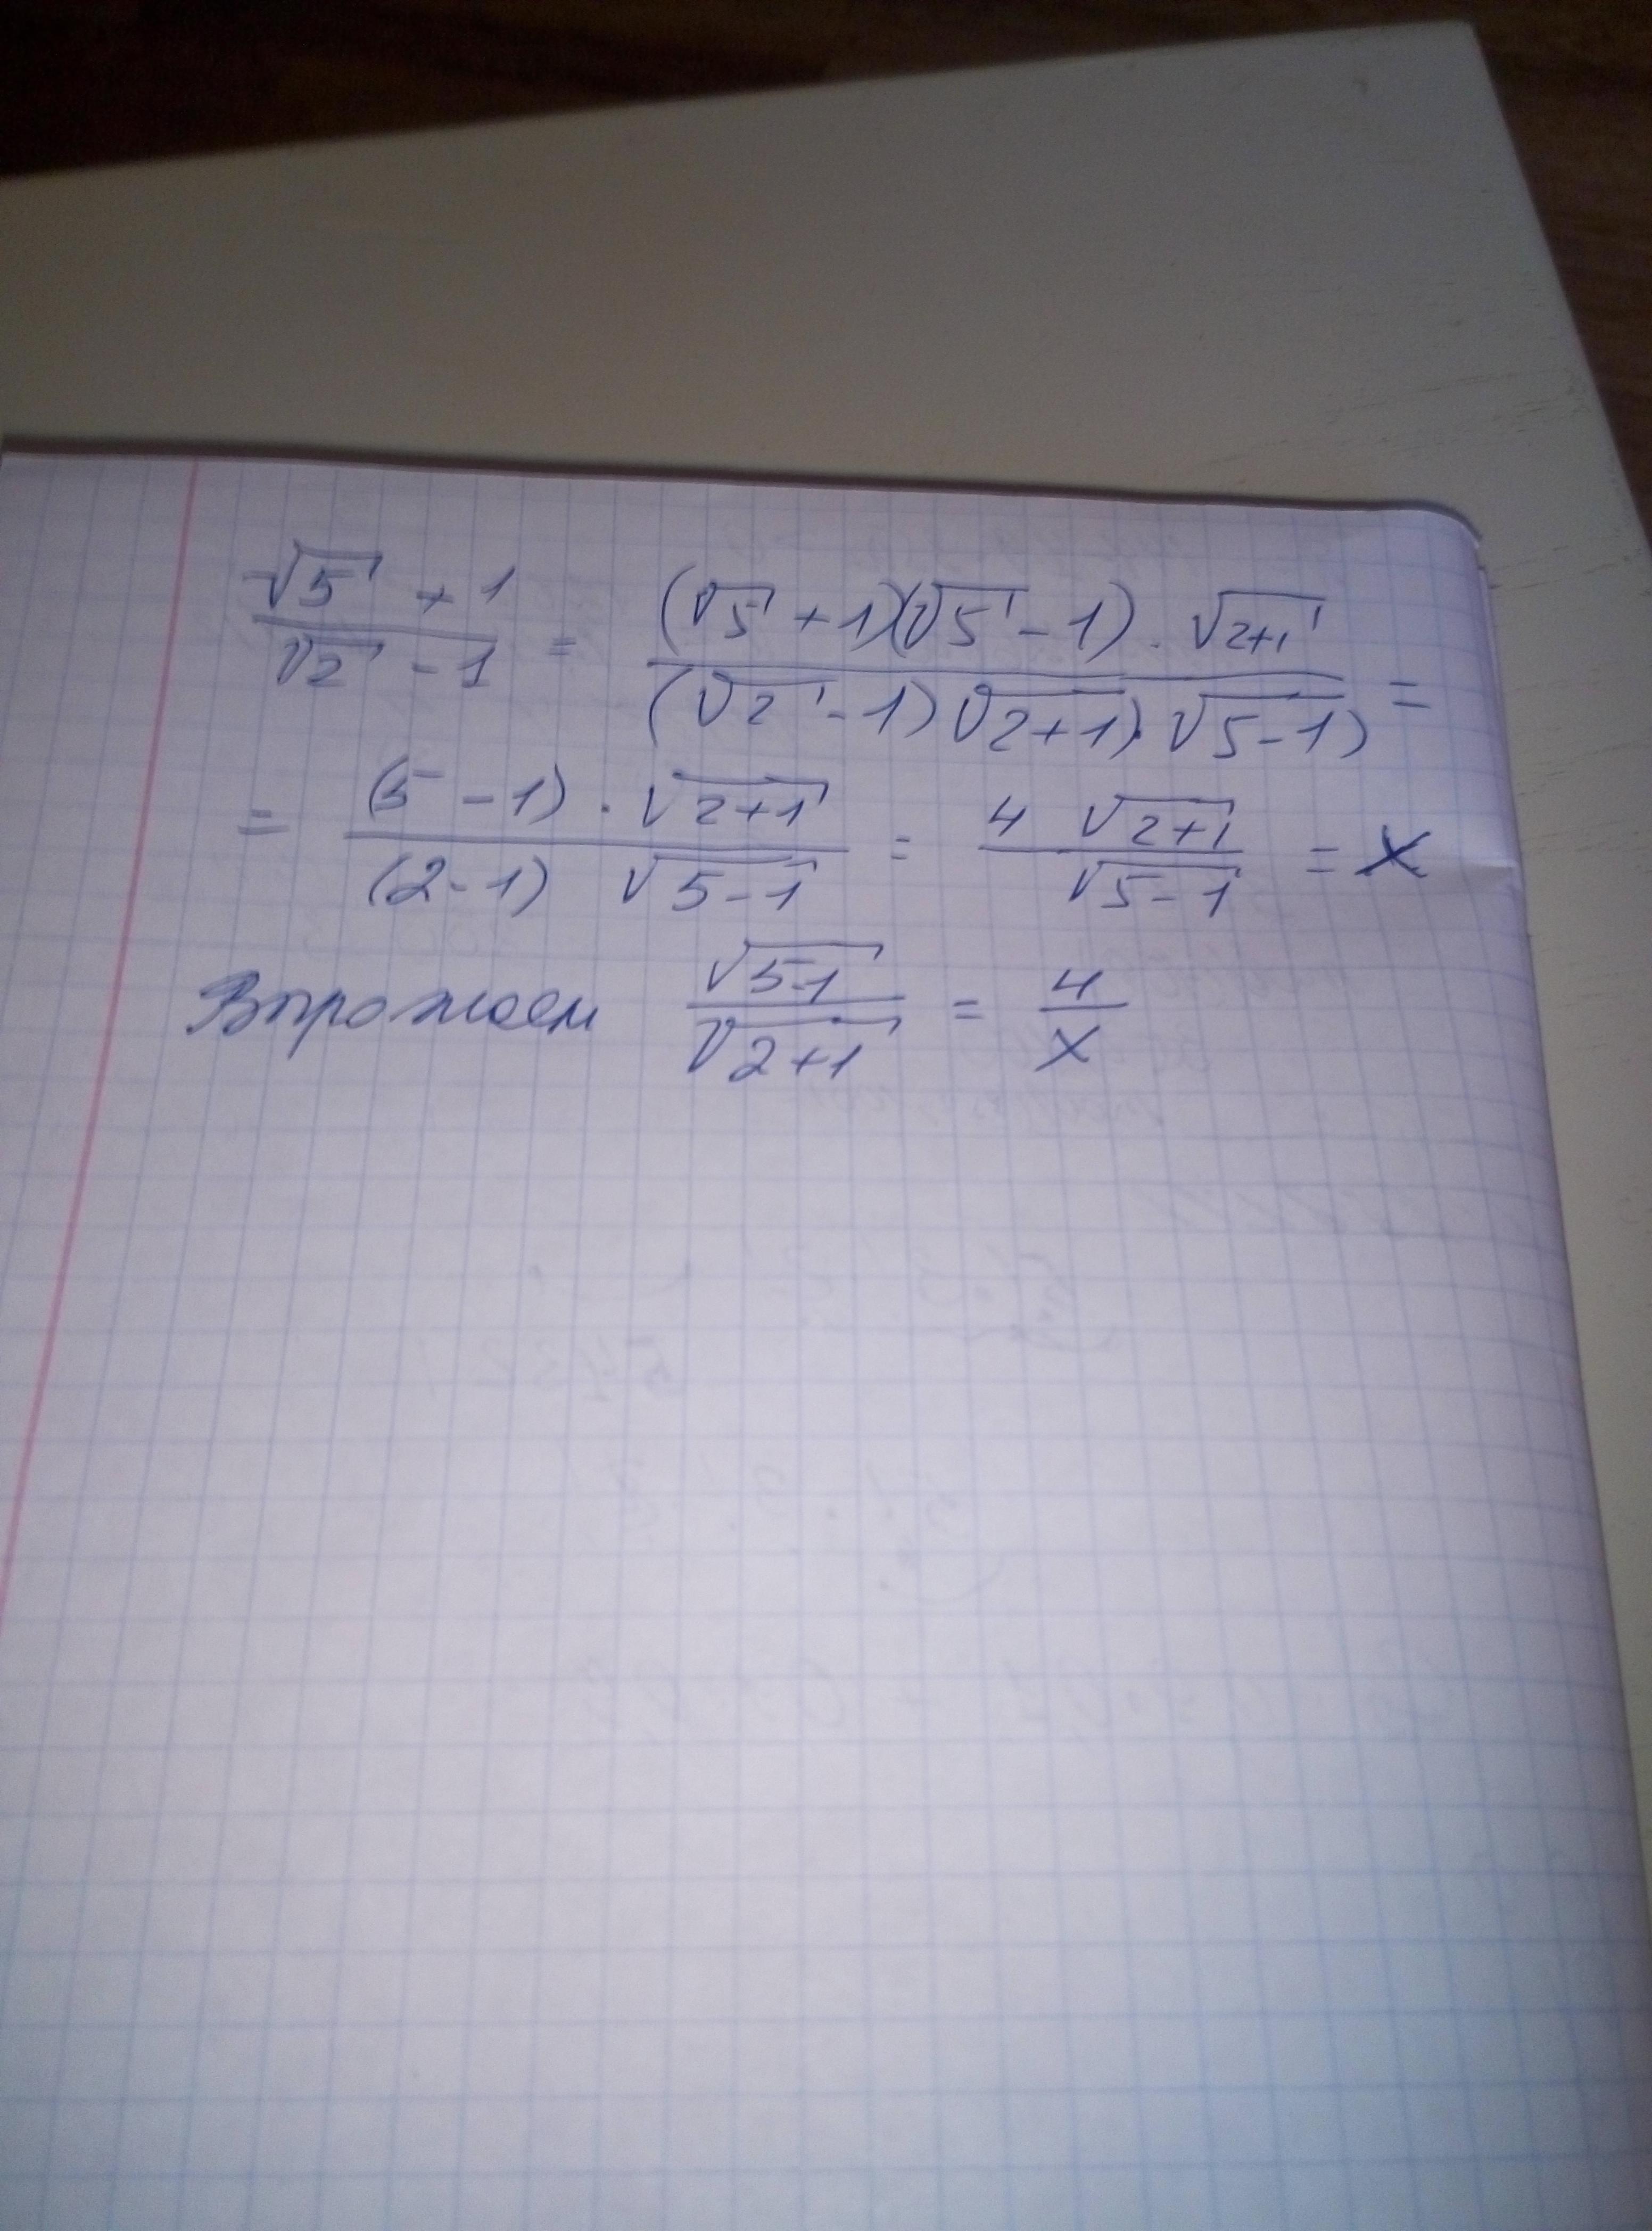 (√5 + 1)/(√2 - 1) = ((√5 + 1)(√5 - 1) · √2+1)/((√2 - 1)√2+1) · √5-1)) =
= ((5 - 1) · √2+1)/((2-1) √5-1) = (4 √2+1)/(√5-1) = x
Выражаем √5-1/√2+1 = 4/x